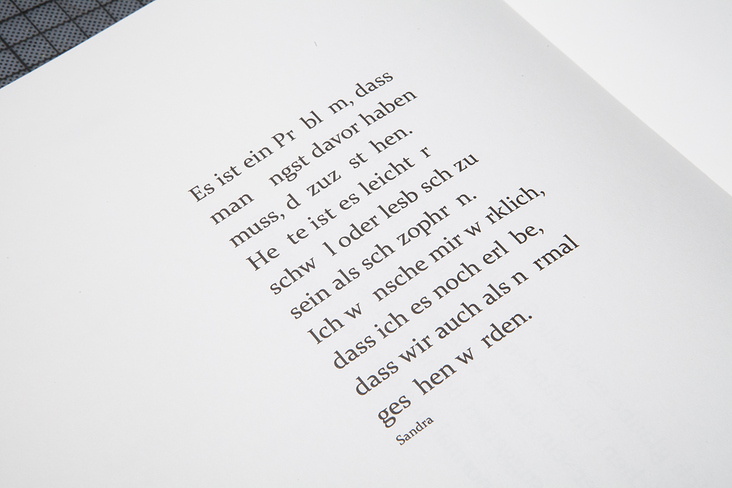 Es ist ein Pr bl m, dass
man ngst davor haben
muss, d zuz st hen.
He te ist es leicht r
schw l oder lesb sch zu
sein als sch zophr n.
Ich w nsche mir w rklich,
dass ich es noch erl be,
dass wir auch als n rmal
ges hen w rden.
Sandra